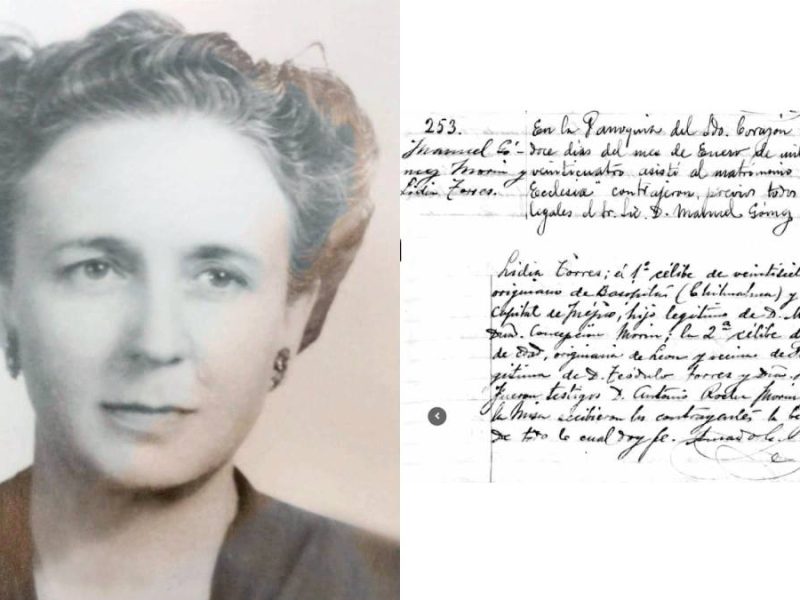 253.
Manuel Gó-
mez Morin y
Lidia Torres.
En la Parroquia del Sdo. Corazón
doce días del mes de Enero de mil
veinticuatro asistí al matrimonio
Ecclesia" contrajeron, previos todos
legales el Sr. Lic. D. Manuel Gómez
Lidia Torres; el 1º célibe de
originario de Batopilas (Chihuahua) y
Capital de hijo legítimo de D. M
Concepción Morin; la 2ª célibe d
de edad, originaria de León y vecina de
gitima de D. Teódulo Torres y Dña.
Fueron testigos D. Antonio Morin
la Misa recibieron los contrayentes la be
De todo lo cual doy fe.